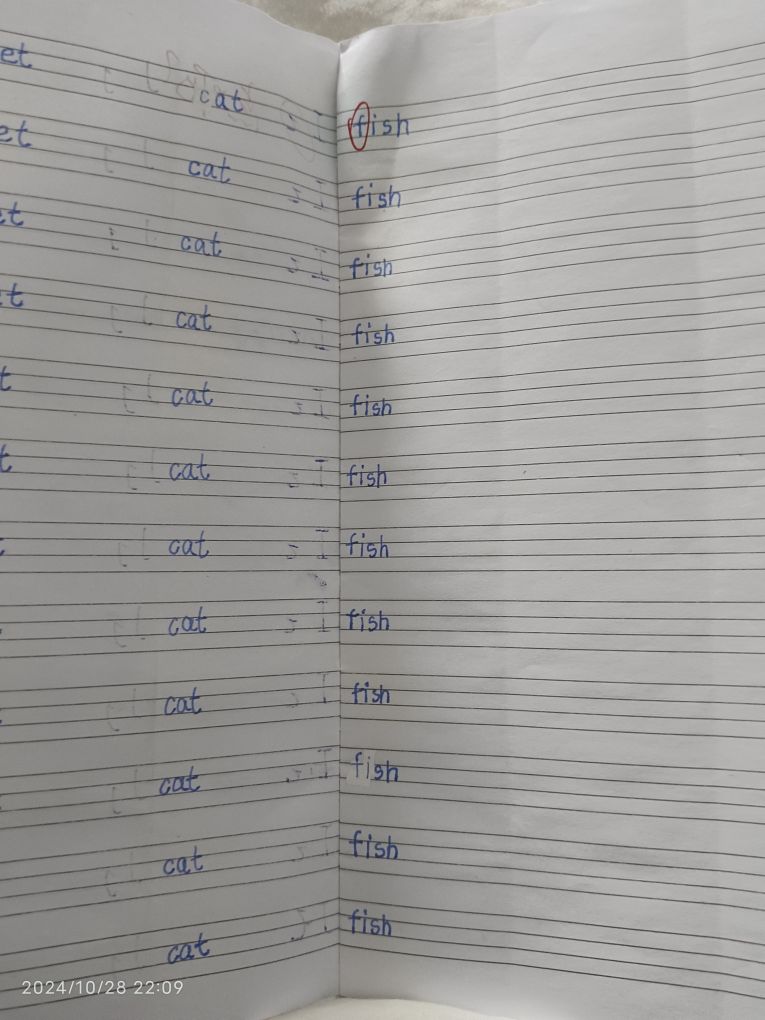 et cat fish
et cat fish
t cat fish
t cat fish
t cat fish
t cat fish
cat fish
cat fish
cat fish
cat fish
cat fish
cat fish
2024/10/28 22:09